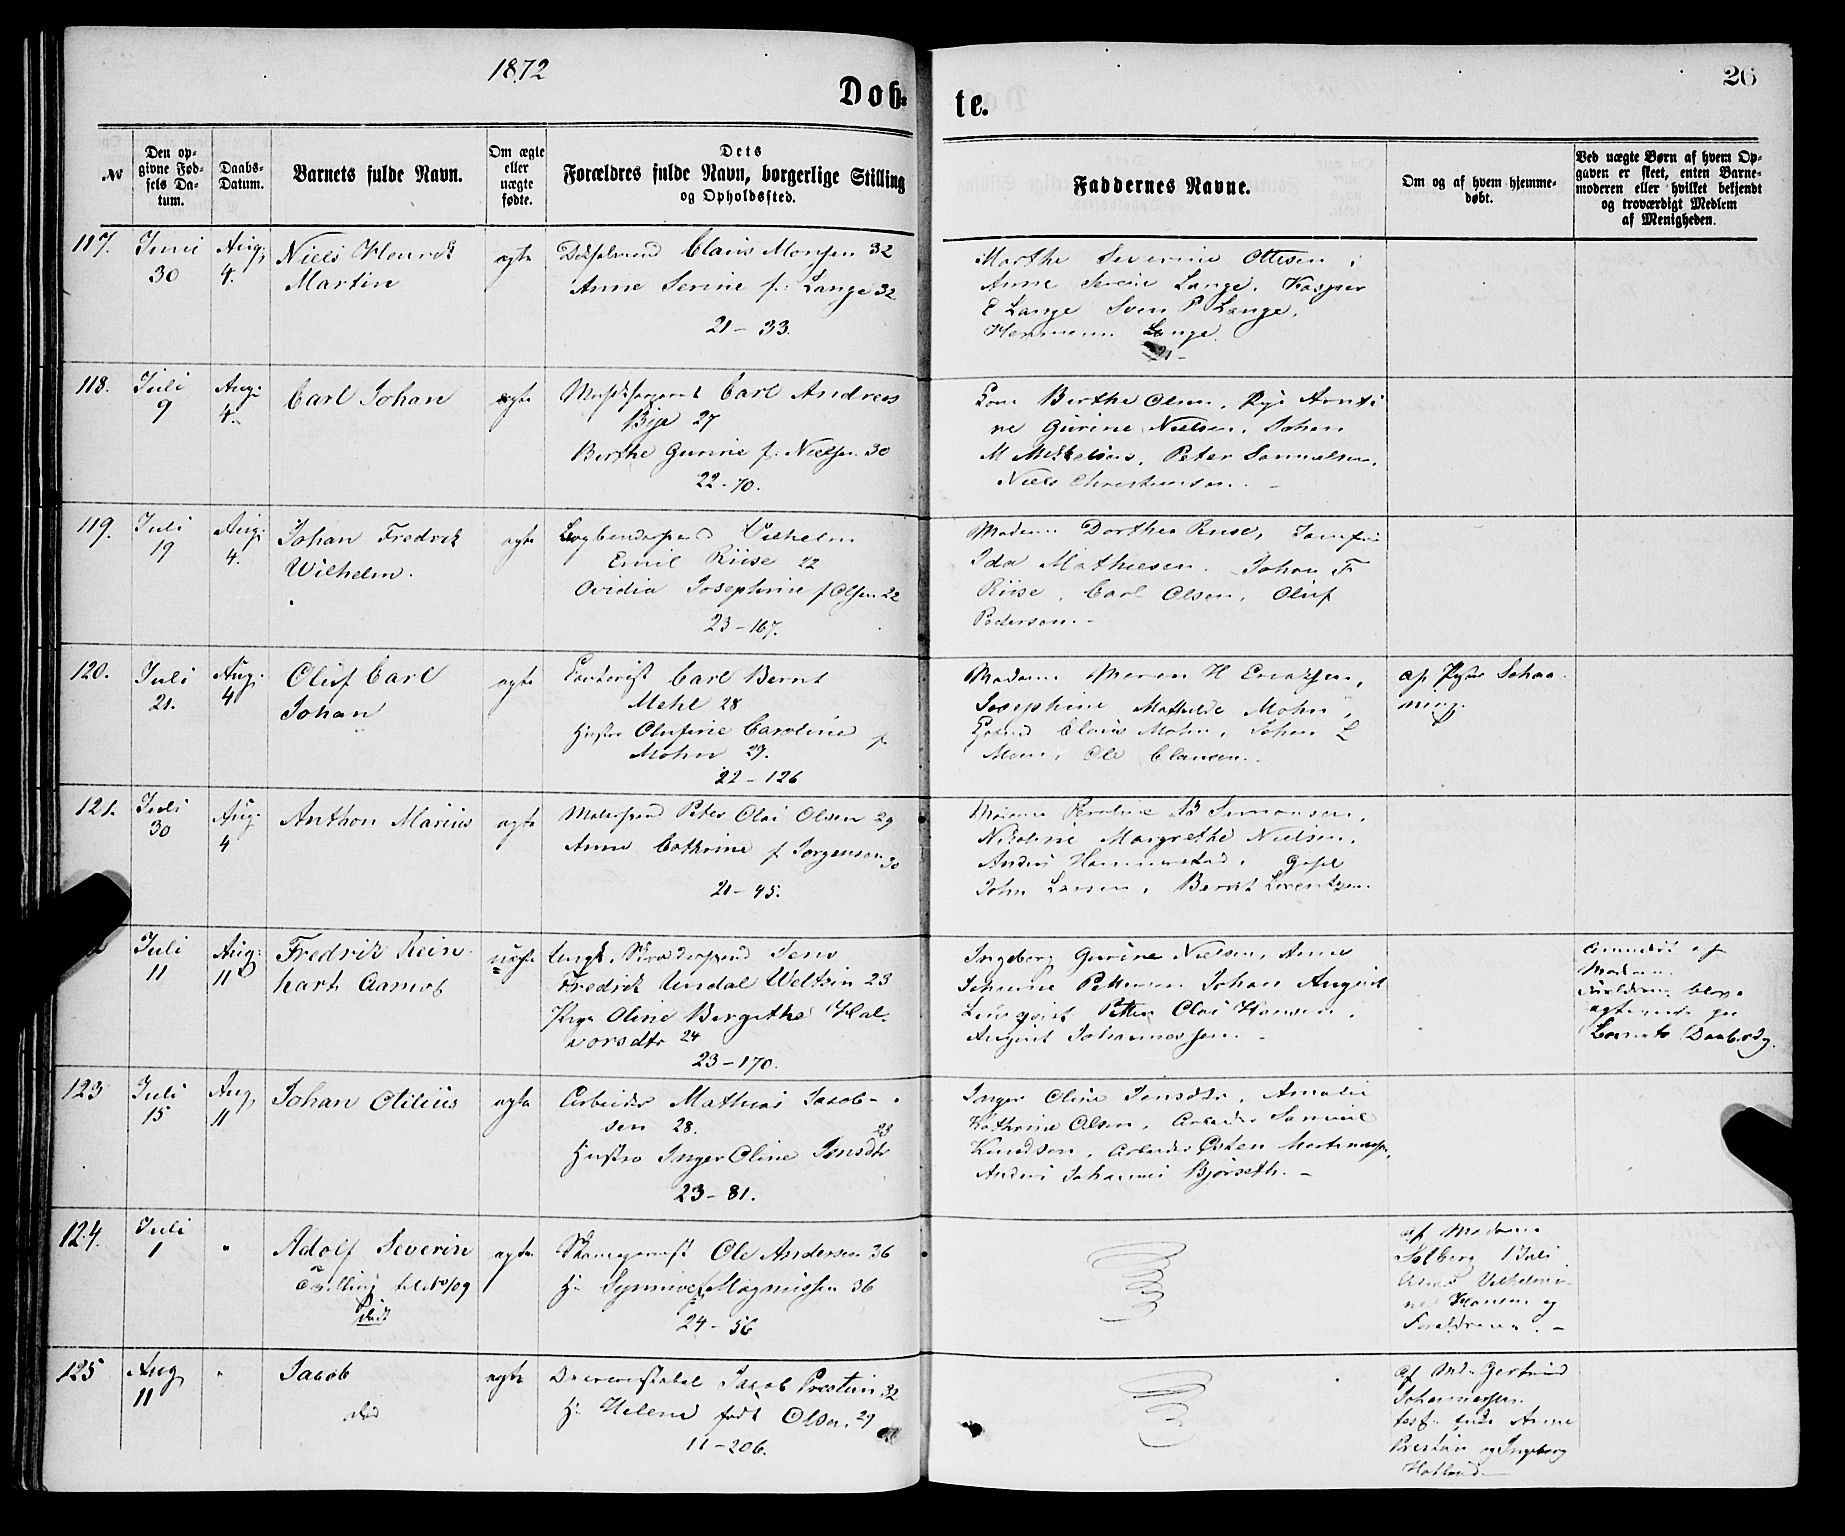 1872
26
Døb-
te.
№
Den op-
givne Fød-
sels Da-
tum.
Daabs-
Datum.
Barnets fulde Navn.
Om ægte
eller
uægte
fødte.
Dets
Forældres fulde Navn, borgerlige Stilling
og Opholdssted.
Faddernes Navne.
Om og af hvem hjemme-
døbt.
Ved uægte Børn af hvem Op-
gaven er skeet, enten Barne-
moderen eller hvilket bekjendt
og troværdigt Medlem
af Menigheden.
117.
Juni
30
Aug:
4.
Niels Henrik
Martin
ægte
Claus Monsen 32
Anne Serine f. Lange 32
21 – 33.
Marthe Severine Ottesen,
Anne Serine Lange, Kasper
E Lange Sven P Lange,
Hermann Lange
118.
Juli
9
Aug:
4.
Carl Johan
ægte
Carl Andreas
Bye 27
Berthe Gurine f. Nielsen 30
22 – 70.
Berthe Olsen, Pige
Gurine Nielsen, Johan
M Mikkelsen, Peter Samuelsen,
Niels Christensen. –
119.
Juli
19
Aug:
4.
Johan Fredrik
Wilhelm.
ægte
Vilhelm
Emil Riise 22
Ovidia Josephine f Olsen 22
23 – 167.
Madam Dorthea Riise, Jomfru
Ida Mathiesen. Johan F
Riise, Carl Olsen, Oluf
Pedersen. –
120.
Juli
21.
Aug.
4
Oluf Carl
Johan
ægte
Carl Bernt
Mehl 28
Hustro Olufine Caroline f
Mohn 29.
22 – 126
Madam Maren H
Josephine Mathilde Mohn,
Claus Mohn, Johan L
Ole Clausen.
af
121.
Juli
30
Aug.
4
Anthon Marius
ægte
Malersvend Peter Olai Olsen 29
Anne Cathrine f Jørgensen 30
21 – 45.
B Simonsen,
Nicoline Margrethe Nielsen,
Anders Hammerstad,
John Larsen, Bernt Lorentzen.
Juli
11
Aug:
11
Fredrik Rein-
hart Aamot
uægte
Ungk. Skrædersvend Jens
Fredrik Undal Weltzin 23
Pige Oline Bergithe Hal-
vorsdtr 24
23 – 170.
Ingeborg Gurine Nielsen, Anne
Johan August
Petter Olai Hansen,
August Johannessen. –
Anmeldt af
Moderen.
Forældrene bleve
ægteviet paa
Barnets Daabsdag.
123
Juli
15
Aug
11
Johan Otilius
ægte
Arbeider Mathias Jacob-
sen 28.
23
Hustro Inger Oline Jensdtr
23 – 81.
Inger Oline Jensdtr, Amalie
Kathrine Olsen, Arbeider Samuel
Knudsen, Arbeider
Anders Johannes Bjørseth. –
124.
Juli
1
"
Adolf Severin
Tvilling til No 109
død
ægte
Ole Andersen 36
H: Synnøve f Magnussen 36
24 – 56
af Madam
Solberg 1 Juli
Hansen og
Forældrene. –
125
Aug
11
"
Jacob
død
ægte
Jacob Prestun 32
H: Helene født Olsen 29
11 – 206.
af Md: Gertrud
Johannessen
Anne
Prestun og Ingeborg